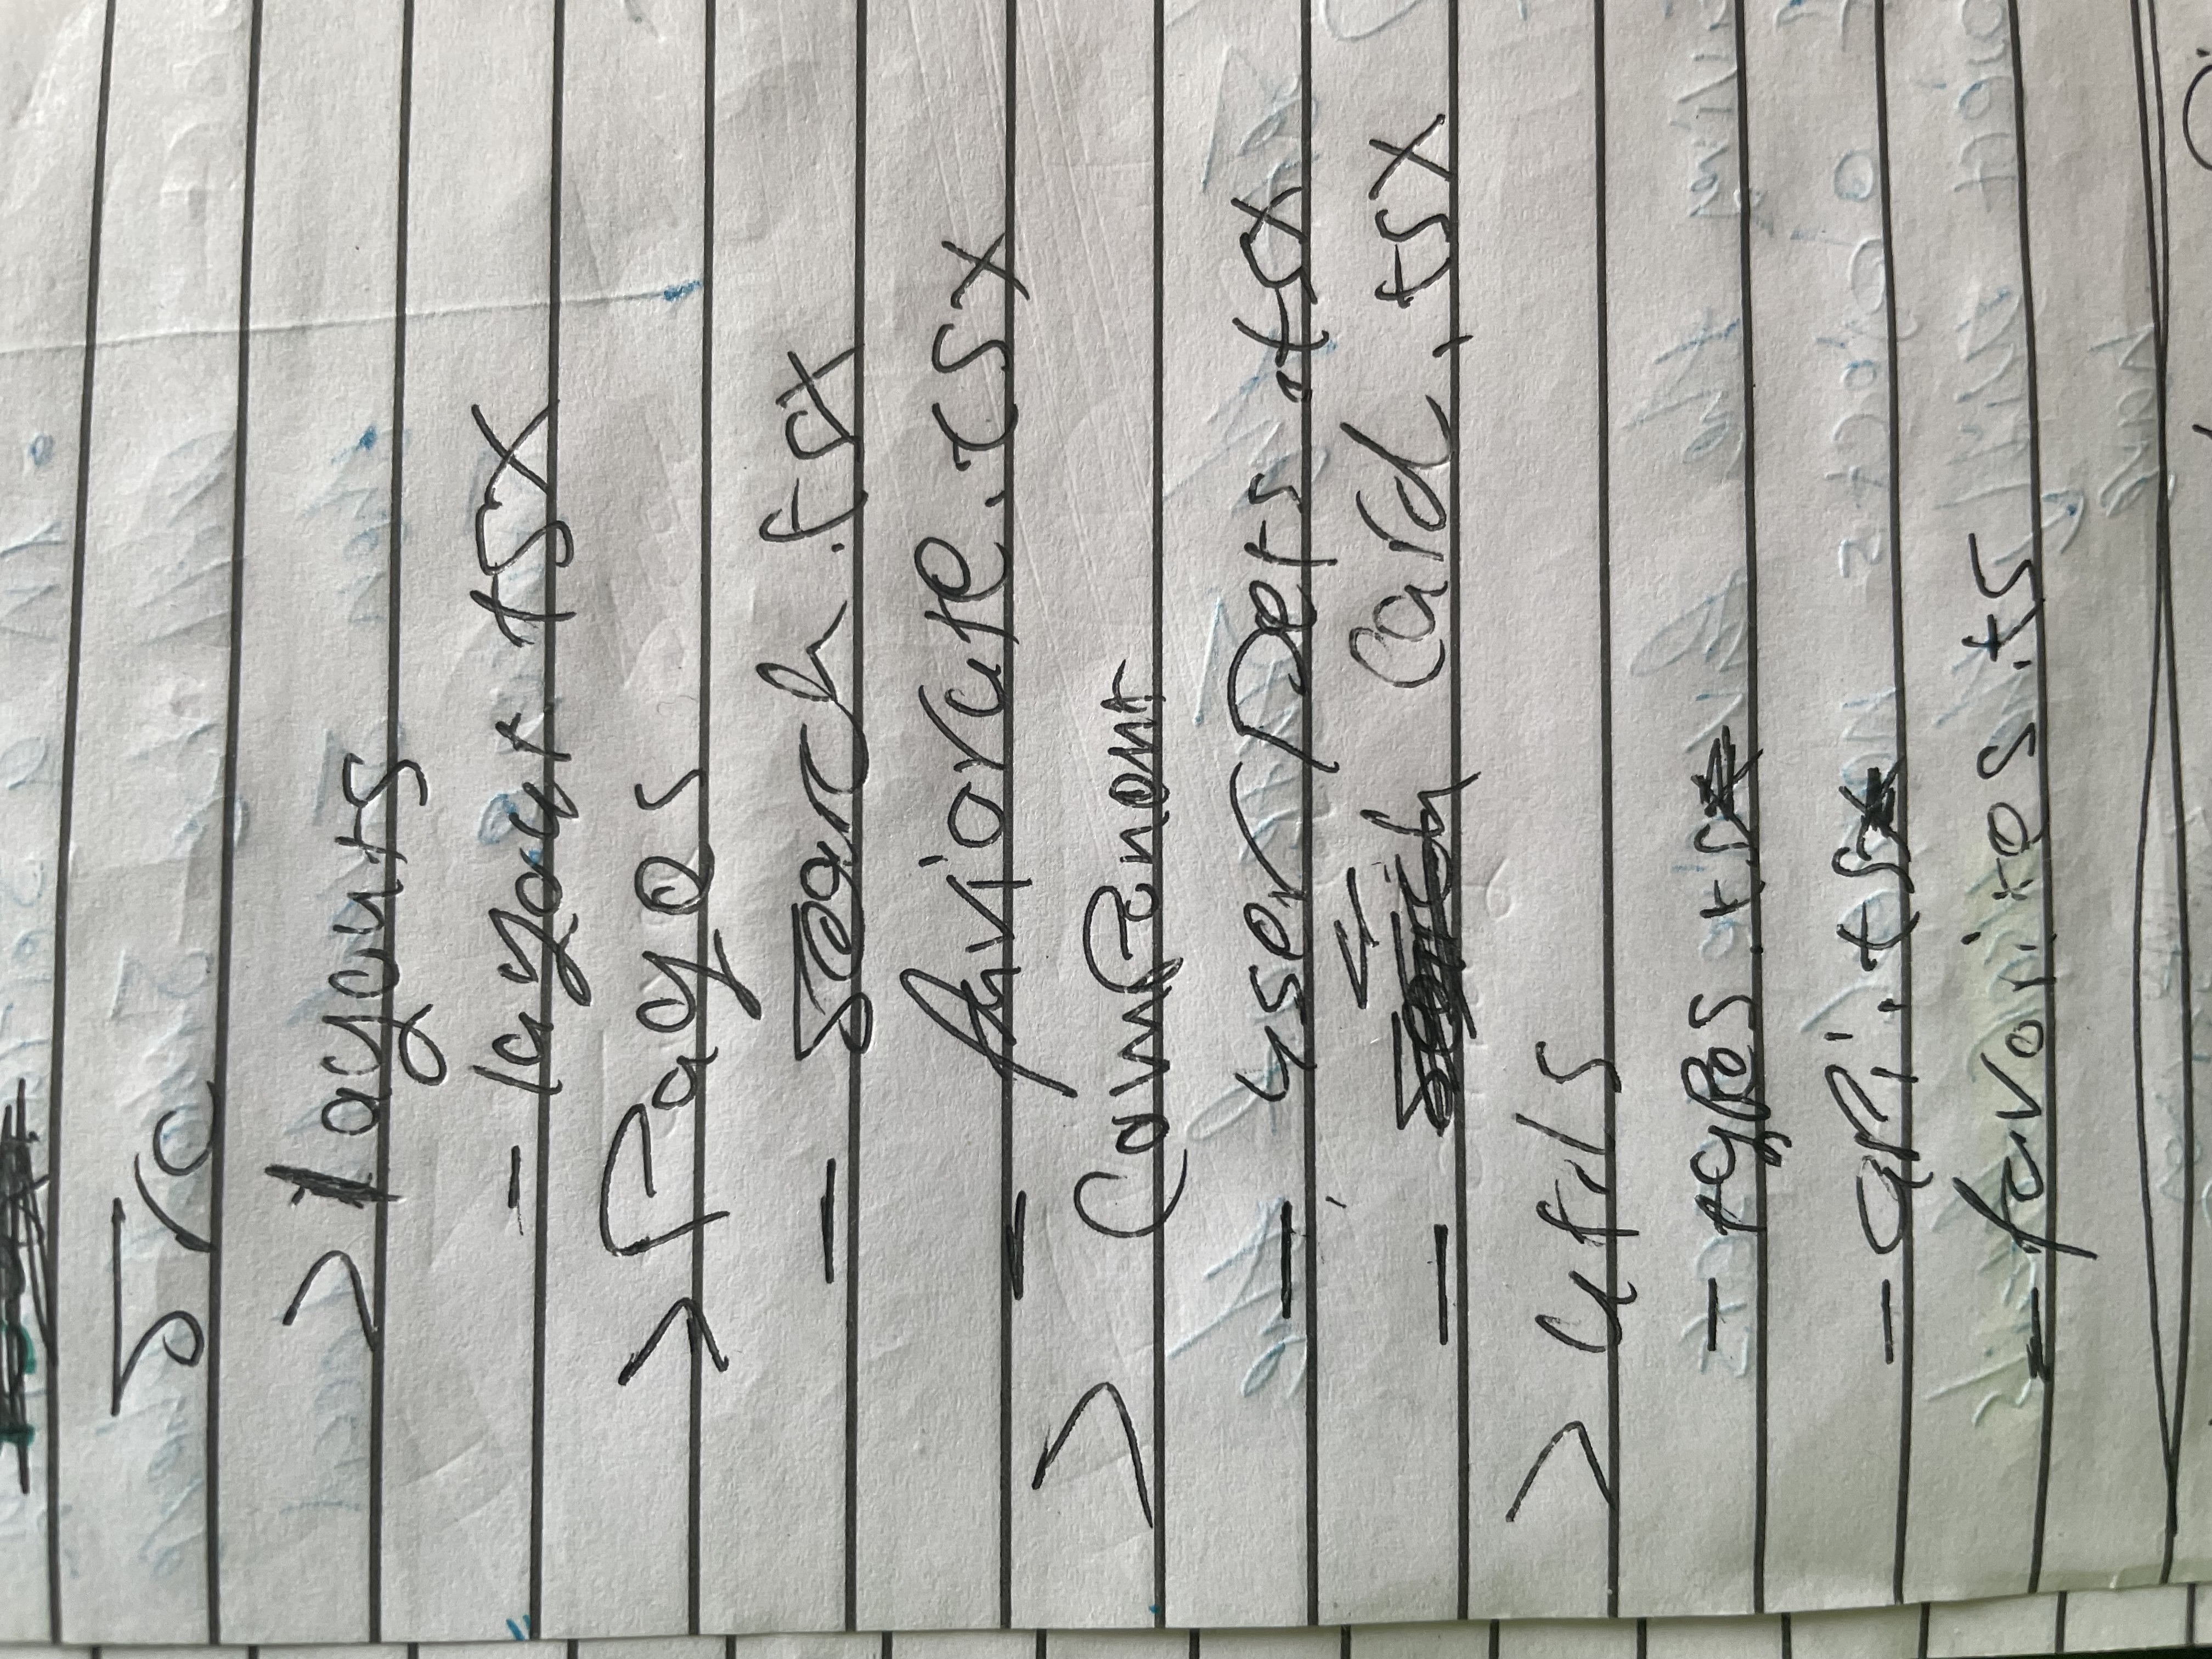 Src
> layouts
- layout.tsx
> Pages
- Search.tsx
- faviorate.tsx
> Component
- user Pets.tsx
- Card.tsx
> utils
- types.ts
- api.ts
- favorites.ts